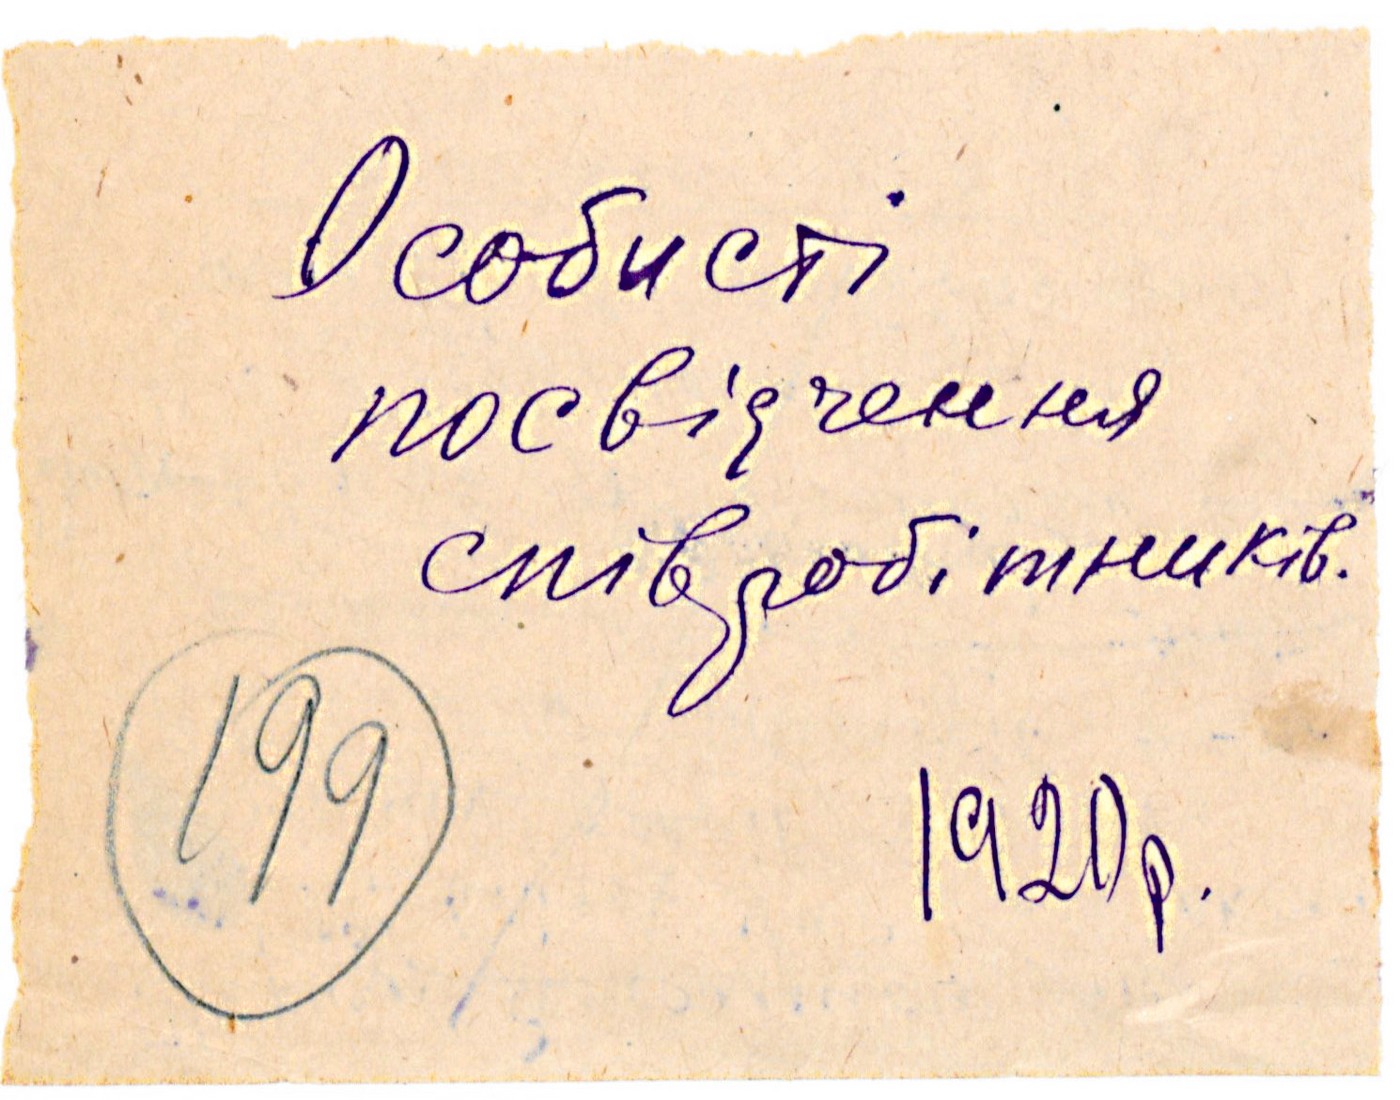 Особисті
посвідчення
співробітників.
199
1920р.